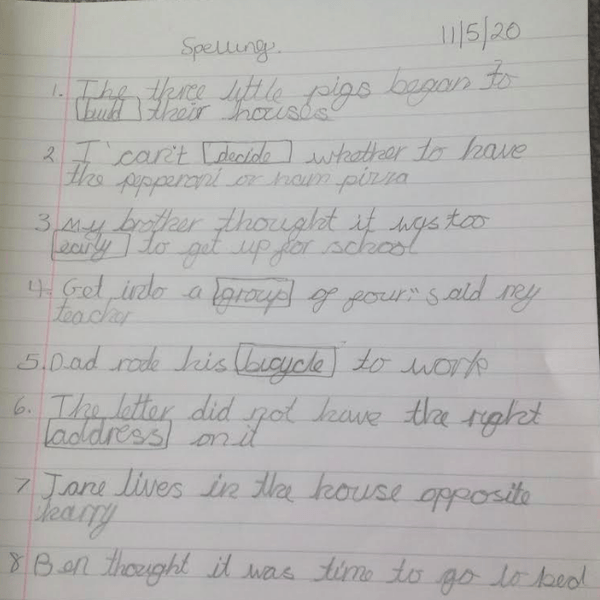 Spelling.
11/5/20
1. The three little pigs began to
build their houses
2 I can't decide whether to have
the pepperoni or ham pizza
3 My brother thought it was too
early to get up for school
4. Get into a group of four" said my
teacher
5. Dad rode his bicycle to work
6. The letter did not have the right
address on it
7 Jane lives in the house opposite
harry
8 Ben thought it was time to go to bed